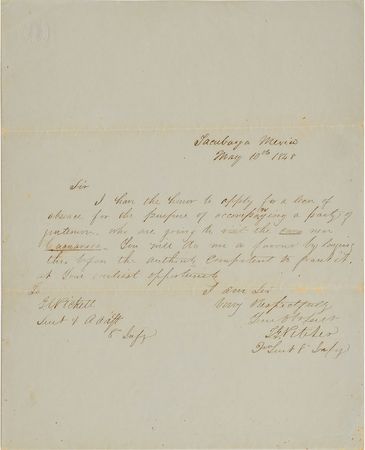 Tacubaya Mexico
May 10th 1848
Sir
I have the honor to apply for a leave of
absence for the purpose of accompanying a party of
gentlemen, who are going to visit the near
You will do me a favour by laying
this before the authority competent to grant it,
at your earliest opportunity
To
I am Sir
Very Respectfully
Lieut & Adjt
8 Infy
Your Obt Svt
Lieut 8 Infy